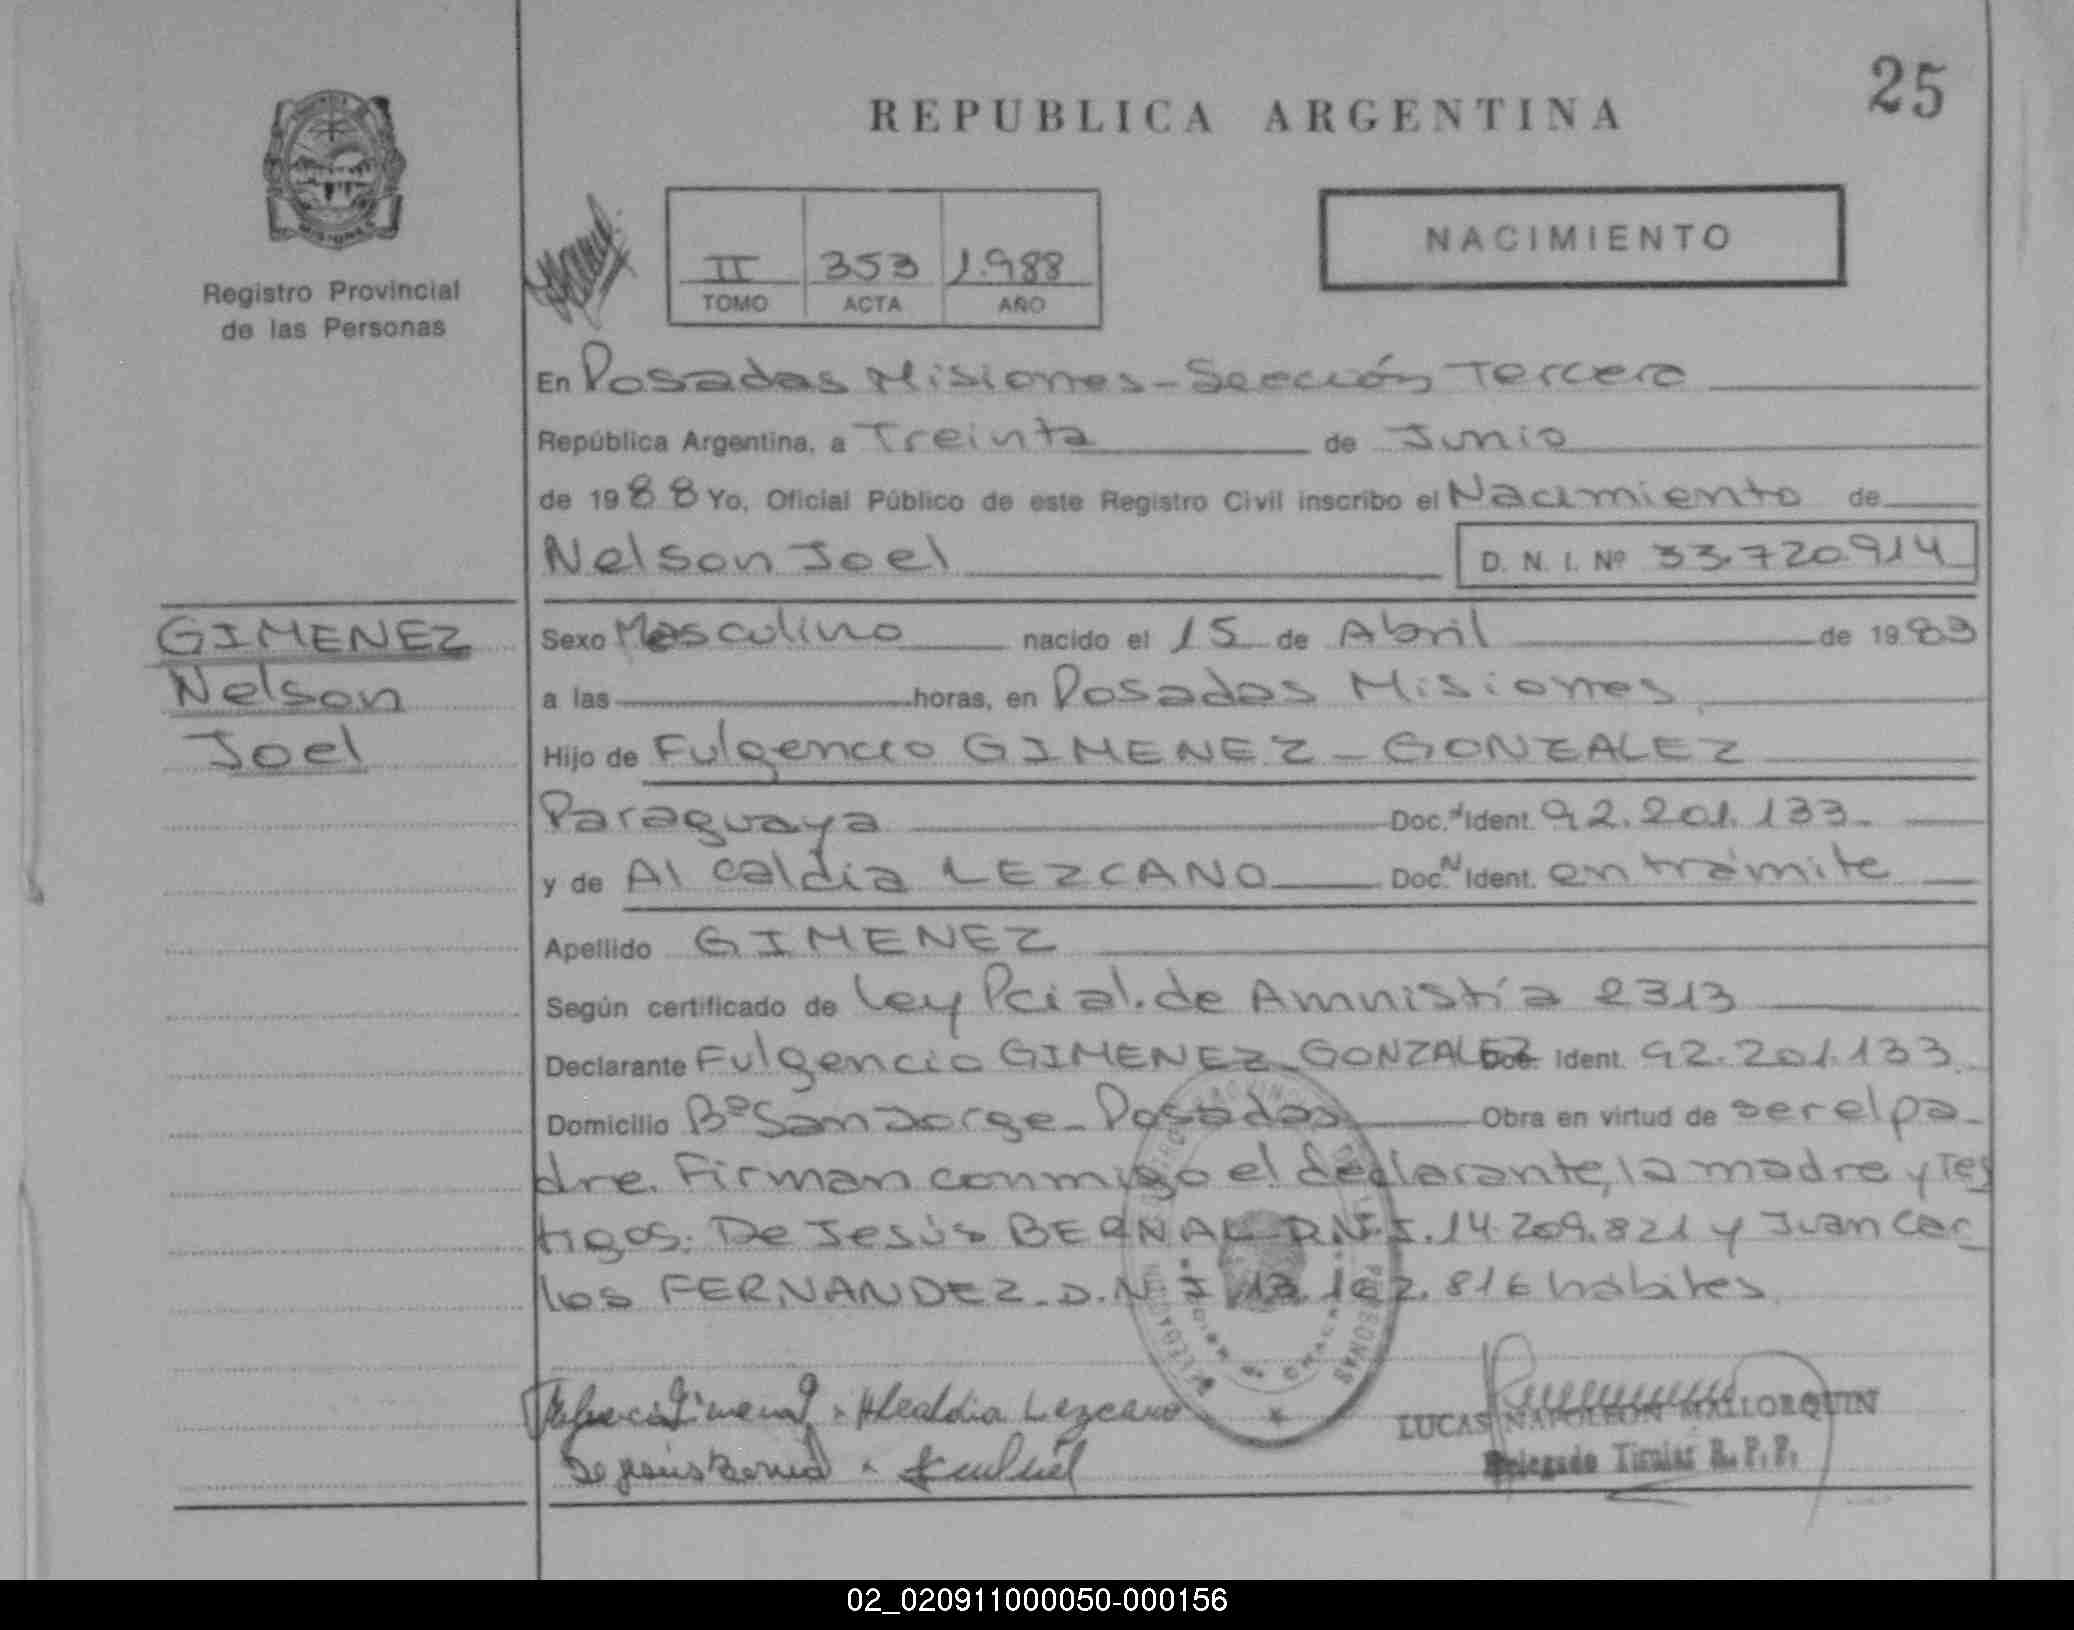 25
REPUBLICA ARGENTINA
NACIMIENTO
II 353 1.988
TOMO ACTA AÑO
Registro Provincial
de las Personas
En Posadas Misiones - Sección Tercera
República Argentina, a Treinta de Junio
de 1988 Yo, Oficial Público de este Registro Civil inscribo el Nacimiento de
Nelson Joel D. N. I. Nº 33.720.914
GIMENEZ
Nelson
Joel
Sexo Masculino nacido el 15 de Abril de 1983
a las horas, en Posadas Misiones
Hijo de Fulgencio GIMENEZ - GONZALEZ
Paraguaya Doc. Ident. 92.201.133.
y de Alcaldia LEZCANO Doc. Ident. en trámite
Apellido GIMENEZ
Según certificado de Ley Pcial. de Amnistía 2313
Declarante Fulgencio GIMENEZ - GONZALEZ Doc. Ident. 92.201.133.
Domicilio Bº San Jorge - Posadas Obra en virtud de ser el pa-
dre. Firman conmigo el declarante, la madre y tes
tigos: De Jesús BERNAL D.N.I. 14.209.821 y Juan Car_
los FERNANDEZ. D.N.I 13.162.816 hábiles
Alcaldia Lezcano
LUCAS NAPOLEON MALLORQUIN
Delegado Titular R. P. P.
02_020911000050-000156